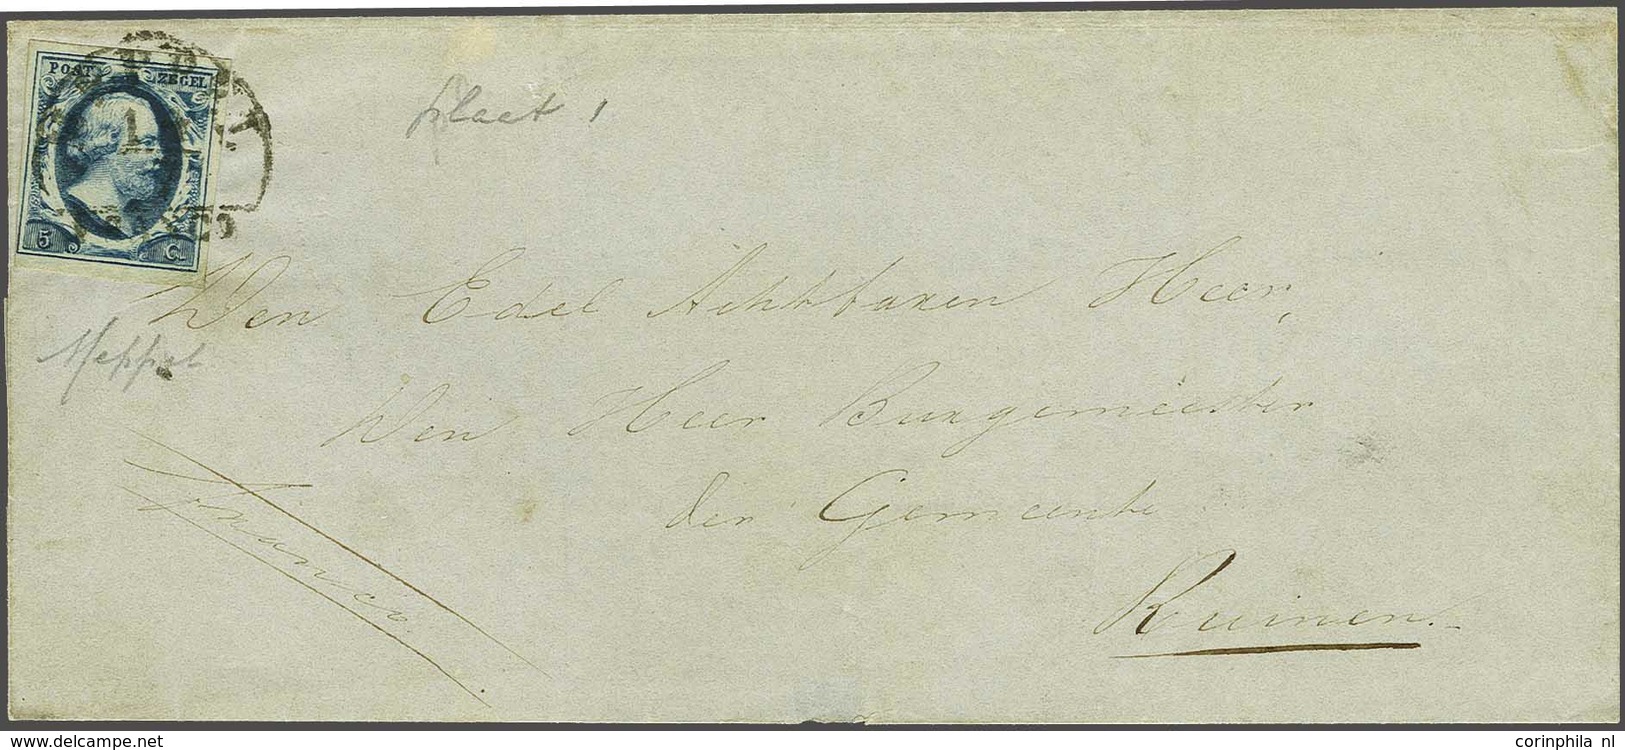 POST ZEGEL
5 C.
plaat 1
Meppel
Den Edel Achtbaren Heer,
Den Heer Burgemeester
der Gemeente
Ruinen.
Franco.
delcampe.net
corinphila nl